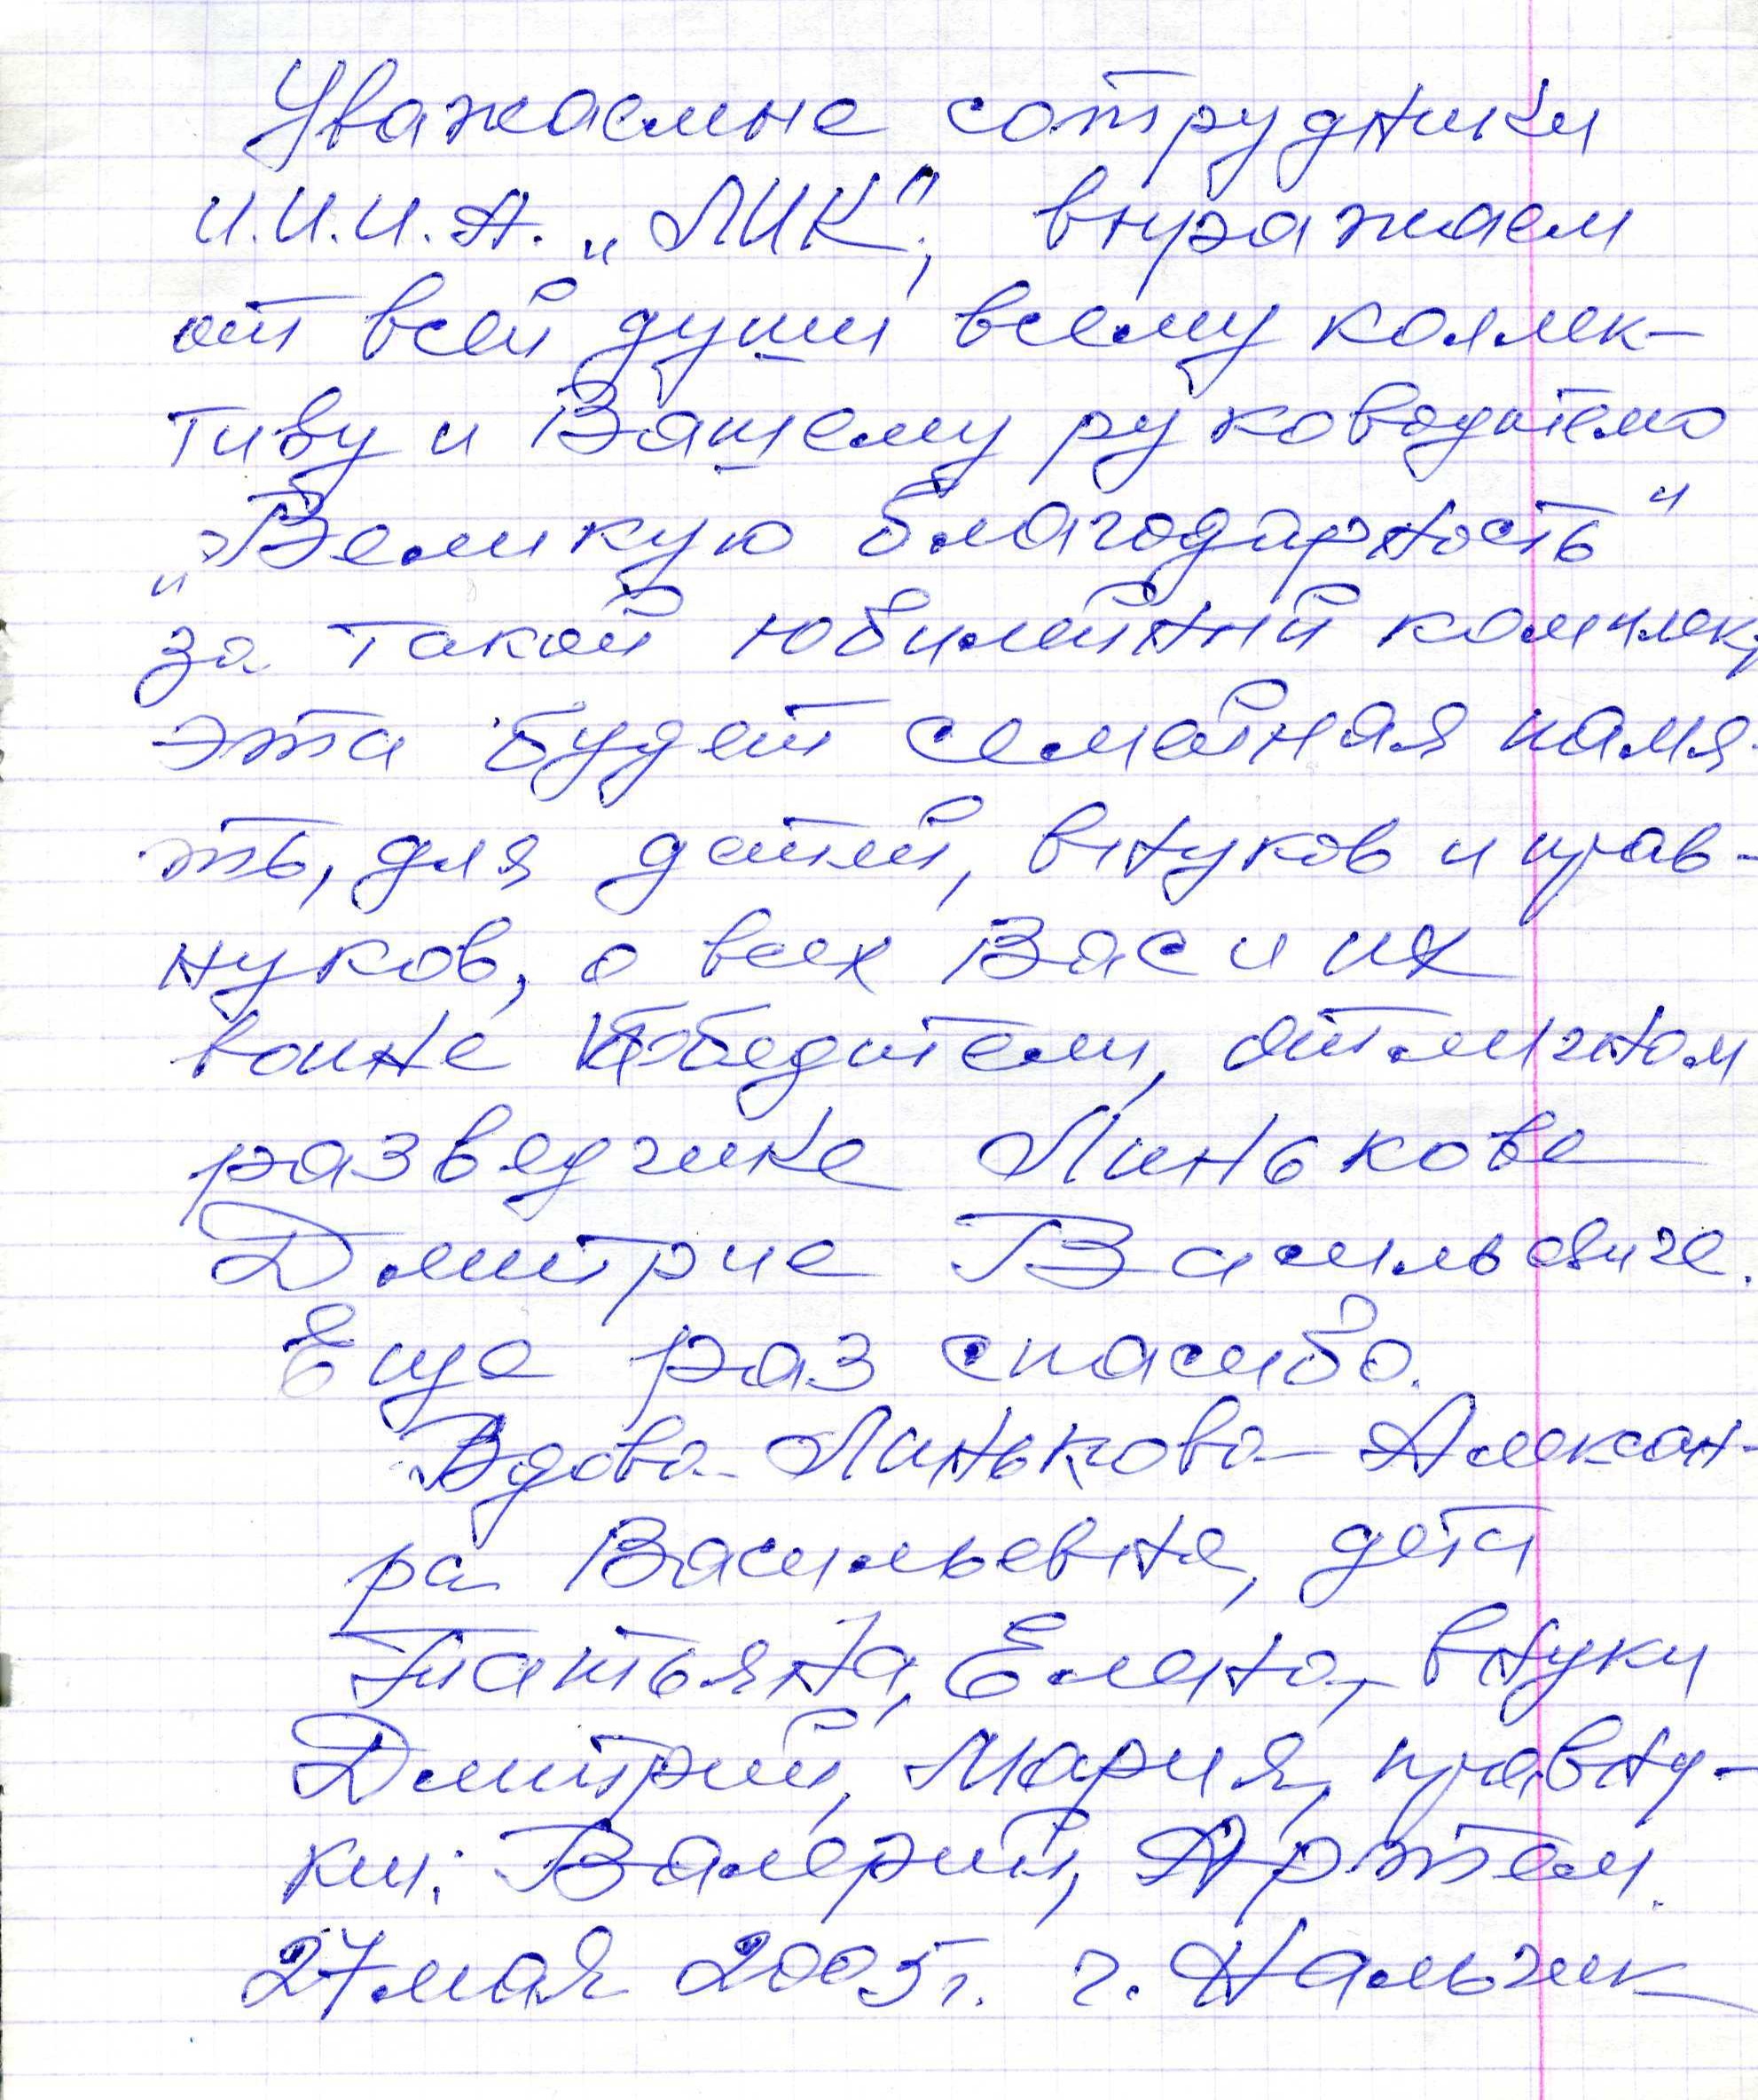 Уважаемые сотрудники
И.И.И.А. „ЛИК", выражаем
от всей души всему коллек-
тиву и Вашему руководителю
„Великую благодарность"
за такой юбилейный комплек,
эта будет семейная памя-
ть, для детей, внуков и прав-
нуков, о всех Вас и их
воине Победители, отличном
разведчике Линькове
Дмитрие Васильевиче.
Еще раз спасибо.
Вдова Линькова Алексан-
ра Васильевна, дети
Татьяна, Елена, внуки
Дмитрий, Мария, правну-
ки: Валерий, Артем.
27 мая 2005г. г. Нальчик